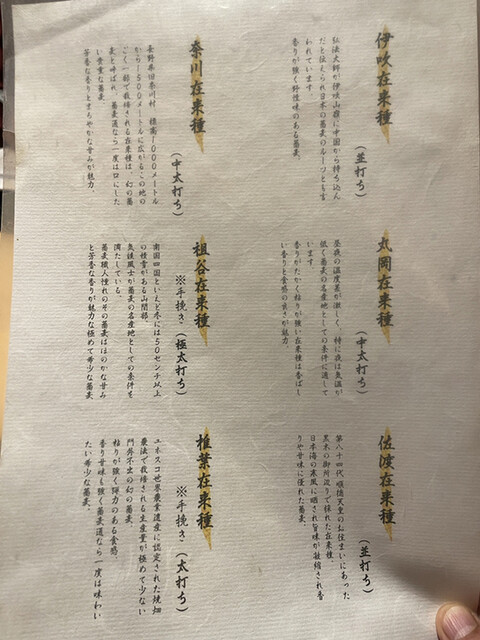 伊吹在来種
（並打ち）
弘法大師が伊吹山麓に中国から持ち込ん
だと伝えられ日本の蕎麦のルーツとも言
われています。
香りが強く野性味のある蕎麦。
奈川在来種
（中太打ち）
長野県旧奈川村　標高１０００メートル
から１５００メートルに広がるこの地の
ごく一部で栽培される在来種は　幻の蕎
麦と呼ばれ、蕎麦通なら一度は口にした
い貴重な蕎麦
芳香な香りとまろやかな甘みが魅力。
丸岡在来種
（中太打ち）
昼夜の温度差が激しく、特に夜は気温が
低く蕎麦の名産地としての条件に適して
います。
香りがたかく粘りが強い在来種は香ばし
い香りと食感の良さが魅力。
祖谷在来種
※手挽き（極太打ち）
南国四国といえど冬には５０センチ以上
の積雪がある山間部。
気候風土が蕎麦の名産地としての条件を
満たしている。
蕎麦職人憧れのその蕎麦はほのかな甘み
と芳香な香りが魅力な極めて希少な蕎麦
佐渡在来種
（並打ち）
第八十四代　順徳天皇のお住まいにあった
黒木の御所辺りで採れた在来種。
日本海の寒風に晒され旨味が凝縮され香
りや甘味に優れた蕎麦。
椎葉在来種
※手挽き（太打ち）
ユネスコ世界農業遺産に認定された焼畑
農法で栽培される生産量が極めて少ない
門外不出の幻の蕎麦。
粘りが強く弾力のある食感。
香り甘味も強く蕎麦通なら一度は味わい
たい希少な蕎麦。